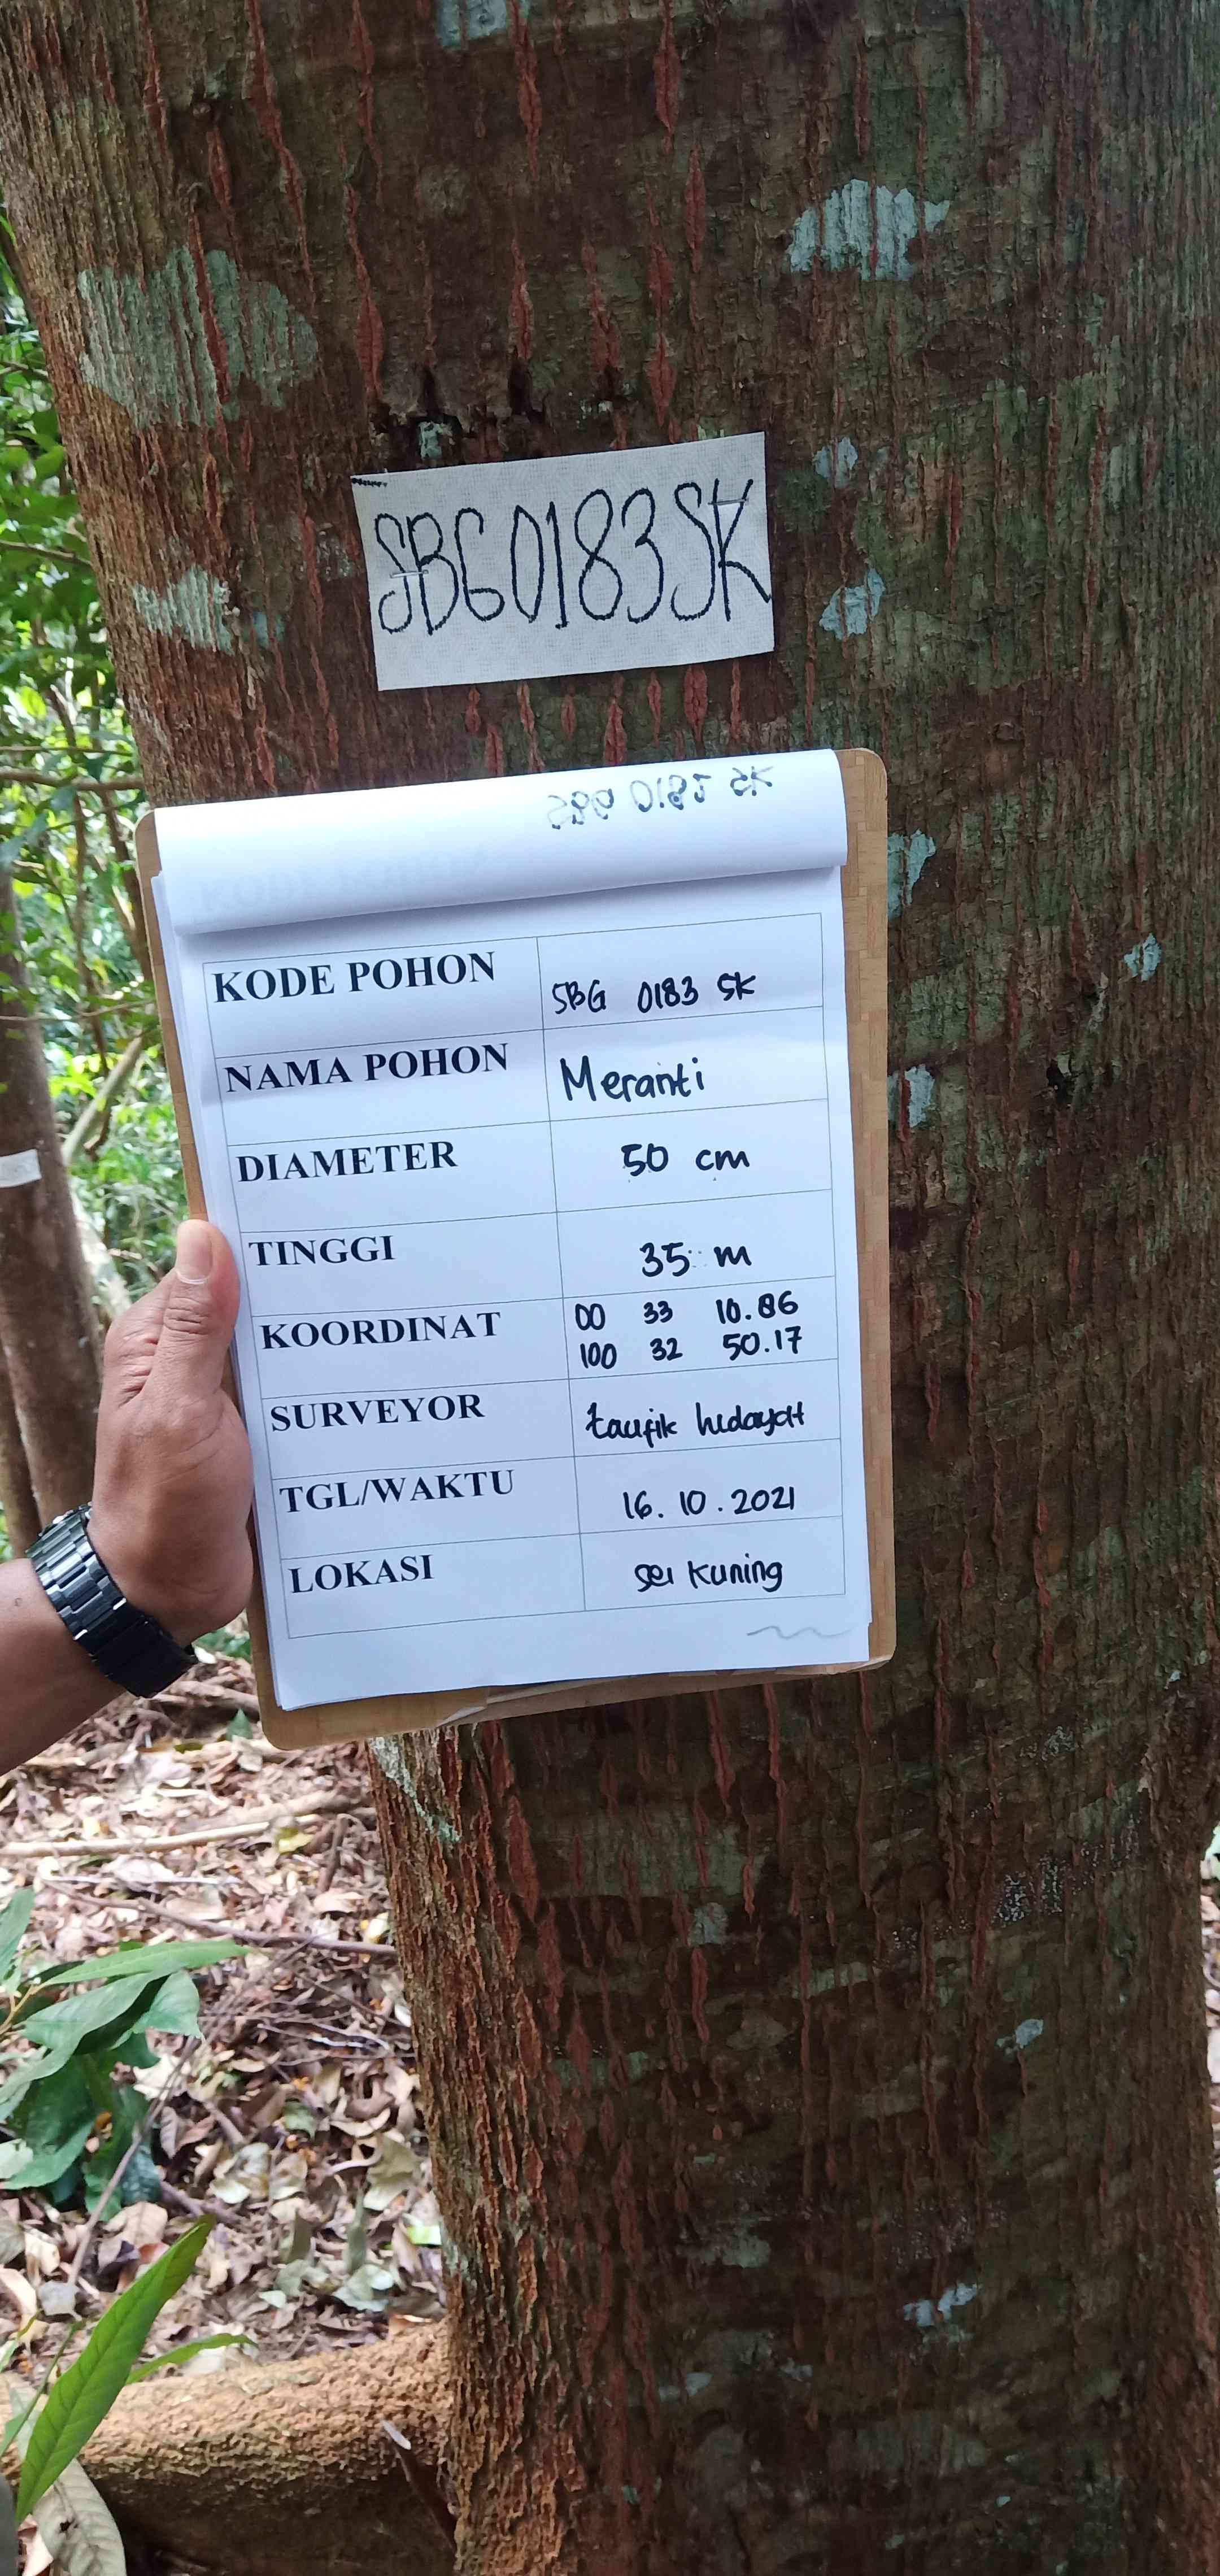 SBG0183SK
KODE POHON SBG 0183 SK
NAMA POHON Meranti
DIAMETER 50 cm
TINGGI 35 m
KOORDINAT 00 33 10.86
100 32 50.17
SURVEYOR taufik hidayat
TGL/WAKTU 16.10.2021
LOKASI sei kuning